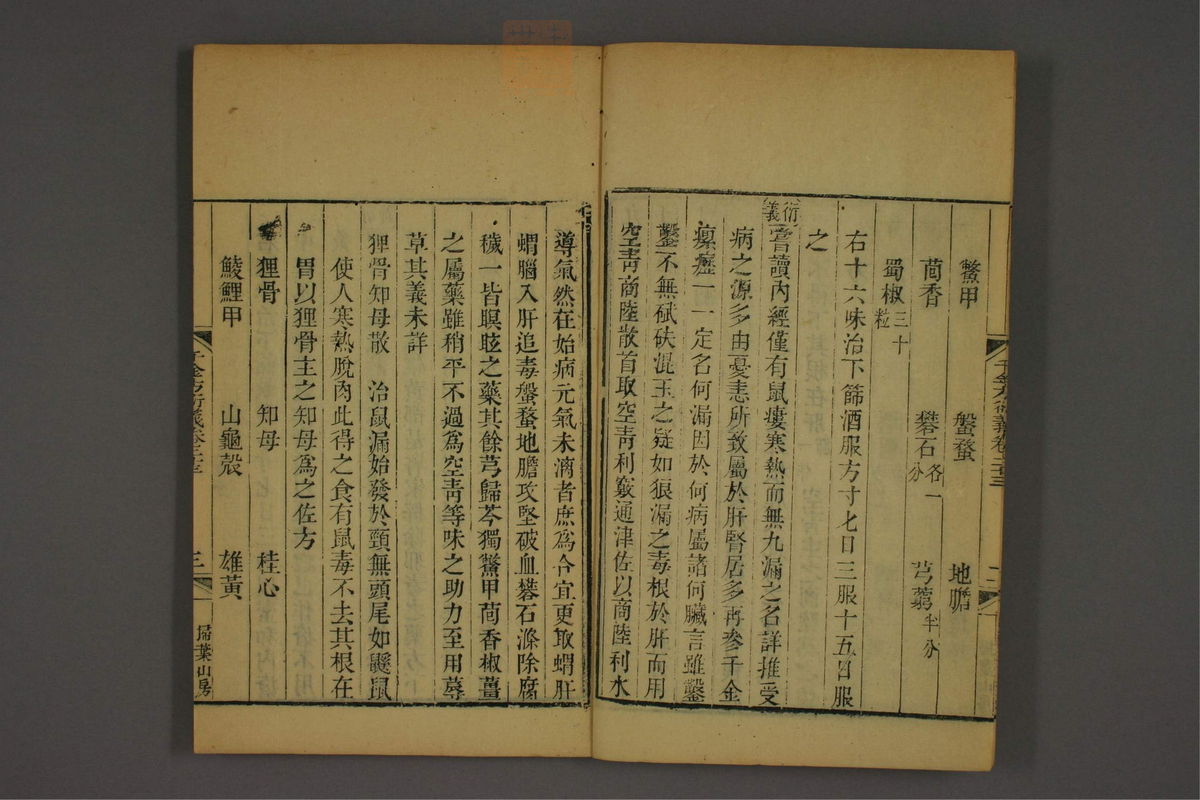 鱉甲 盤蝥 地膽
茴香 礬石各一分 芎藭半分
蜀椒三十粒
右十六味治下篩酒服方寸匕日三服十五日服
之
衍義嘗讀內經僅有鼠瘻寒熱而無九漏之名詳推受
病之源多由憂恚所致屬於肝腎居多再參千金
瘰癧一一定名何漏因於何病屬諸何臟言雖鑿
鑿不無碔砆混玉之疑如狼漏之毒根於肝而用
空靑商陸散首取空靑利竅通津佐以商陸利水
導氣然在始病元氣未漓者庶爲合宜更取蝟肝
蝟腦入肝追毒盤蝥地膽攻堅破血礬石滌除腐
穢一皆瞑眩之藥其餘芎歸芩獨鱉甲茴香椒薑
之屬藥雖稍平不過爲空靑等味之助力至用蓐
草其義未詳
狸骨知母散 治鼠漏始發於頸無頭尾如鼷鼠
使人寒熱脫肉此得之食有鼠毒不去其根在
胃以狸骨主之知母爲之佐方
狸骨 知母 桂心
鯪鯉甲 山龜殼 雄黃
千金方衍義卷二十三 三 掃葉山房